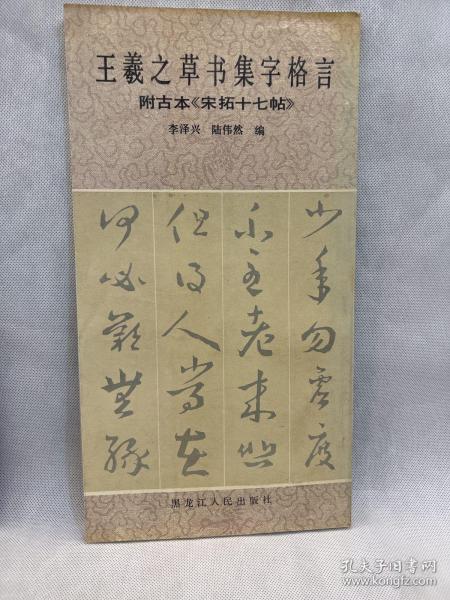 王羲之草书集字格言
附古本《宋拓十七帖》
李泽兴 陆伟然 编
少年勿虚度
老来
但得人常在
何必歎無緣
黑龙江人民出版社
孔夫子旧书网
www.kongfz.com